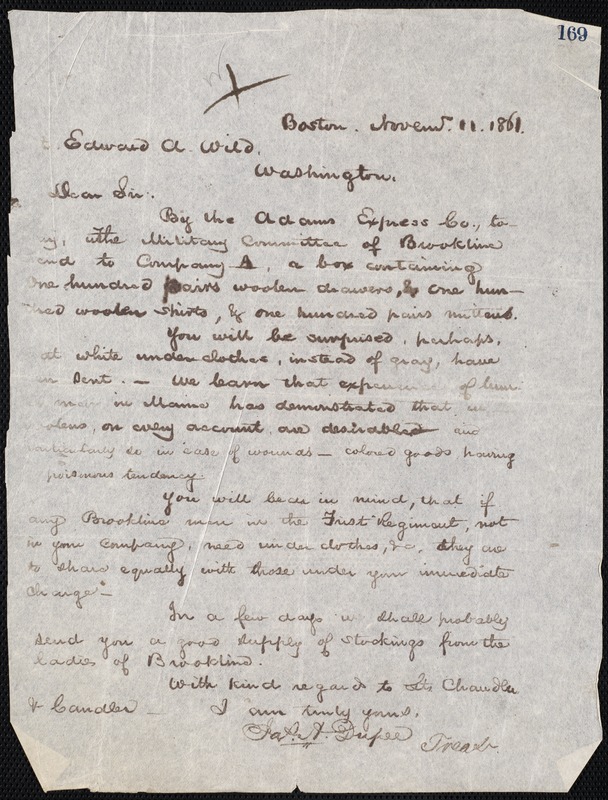 169
Boston. Novemr. 11. 1861.
Edward A. Wild.
Washington.
Dear Sir:
By the Adams Express Co., to-
ay, the Military Committee of Brookline
end to Company A, a box containing
one hundred pairs woolen drawers, & one hun-
dred woolen shirts, & one hundred pairs mittens.
You will be surprised, perhaps,
at white underclothes, instead of gray, have
en sent. — We learn that experience of lum
men in Maine has demonstrated that
olens, on every account are desirable and
particularly so in case of wounds — colored goods having
poisonous tendency.
You will bear in mind, that if
any Brookline men in the First Regiment, not
in your company, need underclothes, &c. they are
to share equally with those under your immediate
charge. —
In a few days we shall probably
send you a good supply of stockings from the
ladies of Brookline.
With kind regards to Lts Chandler
& Candler — I am truly yours,
Jas. A. Dupee
Treasr.